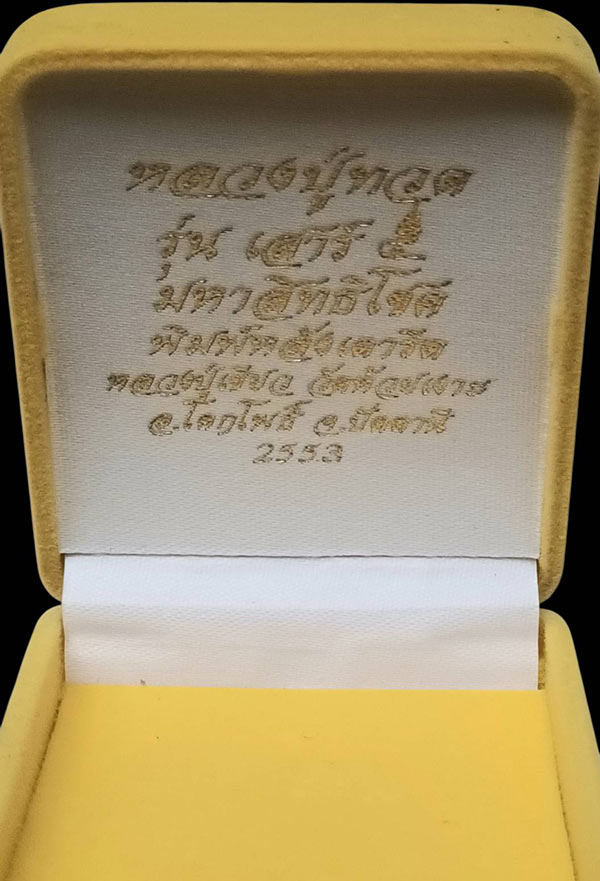 หลวงปู่ทวด
รุ่น เสาร์ ๕
มหาสิทธิโชค
พิมพ์หลังเตารีด
หลวงปู่เขียว วัดห้วยเงาะ
อ.โคกโพธิ์ จ.ปัตตานี
2553